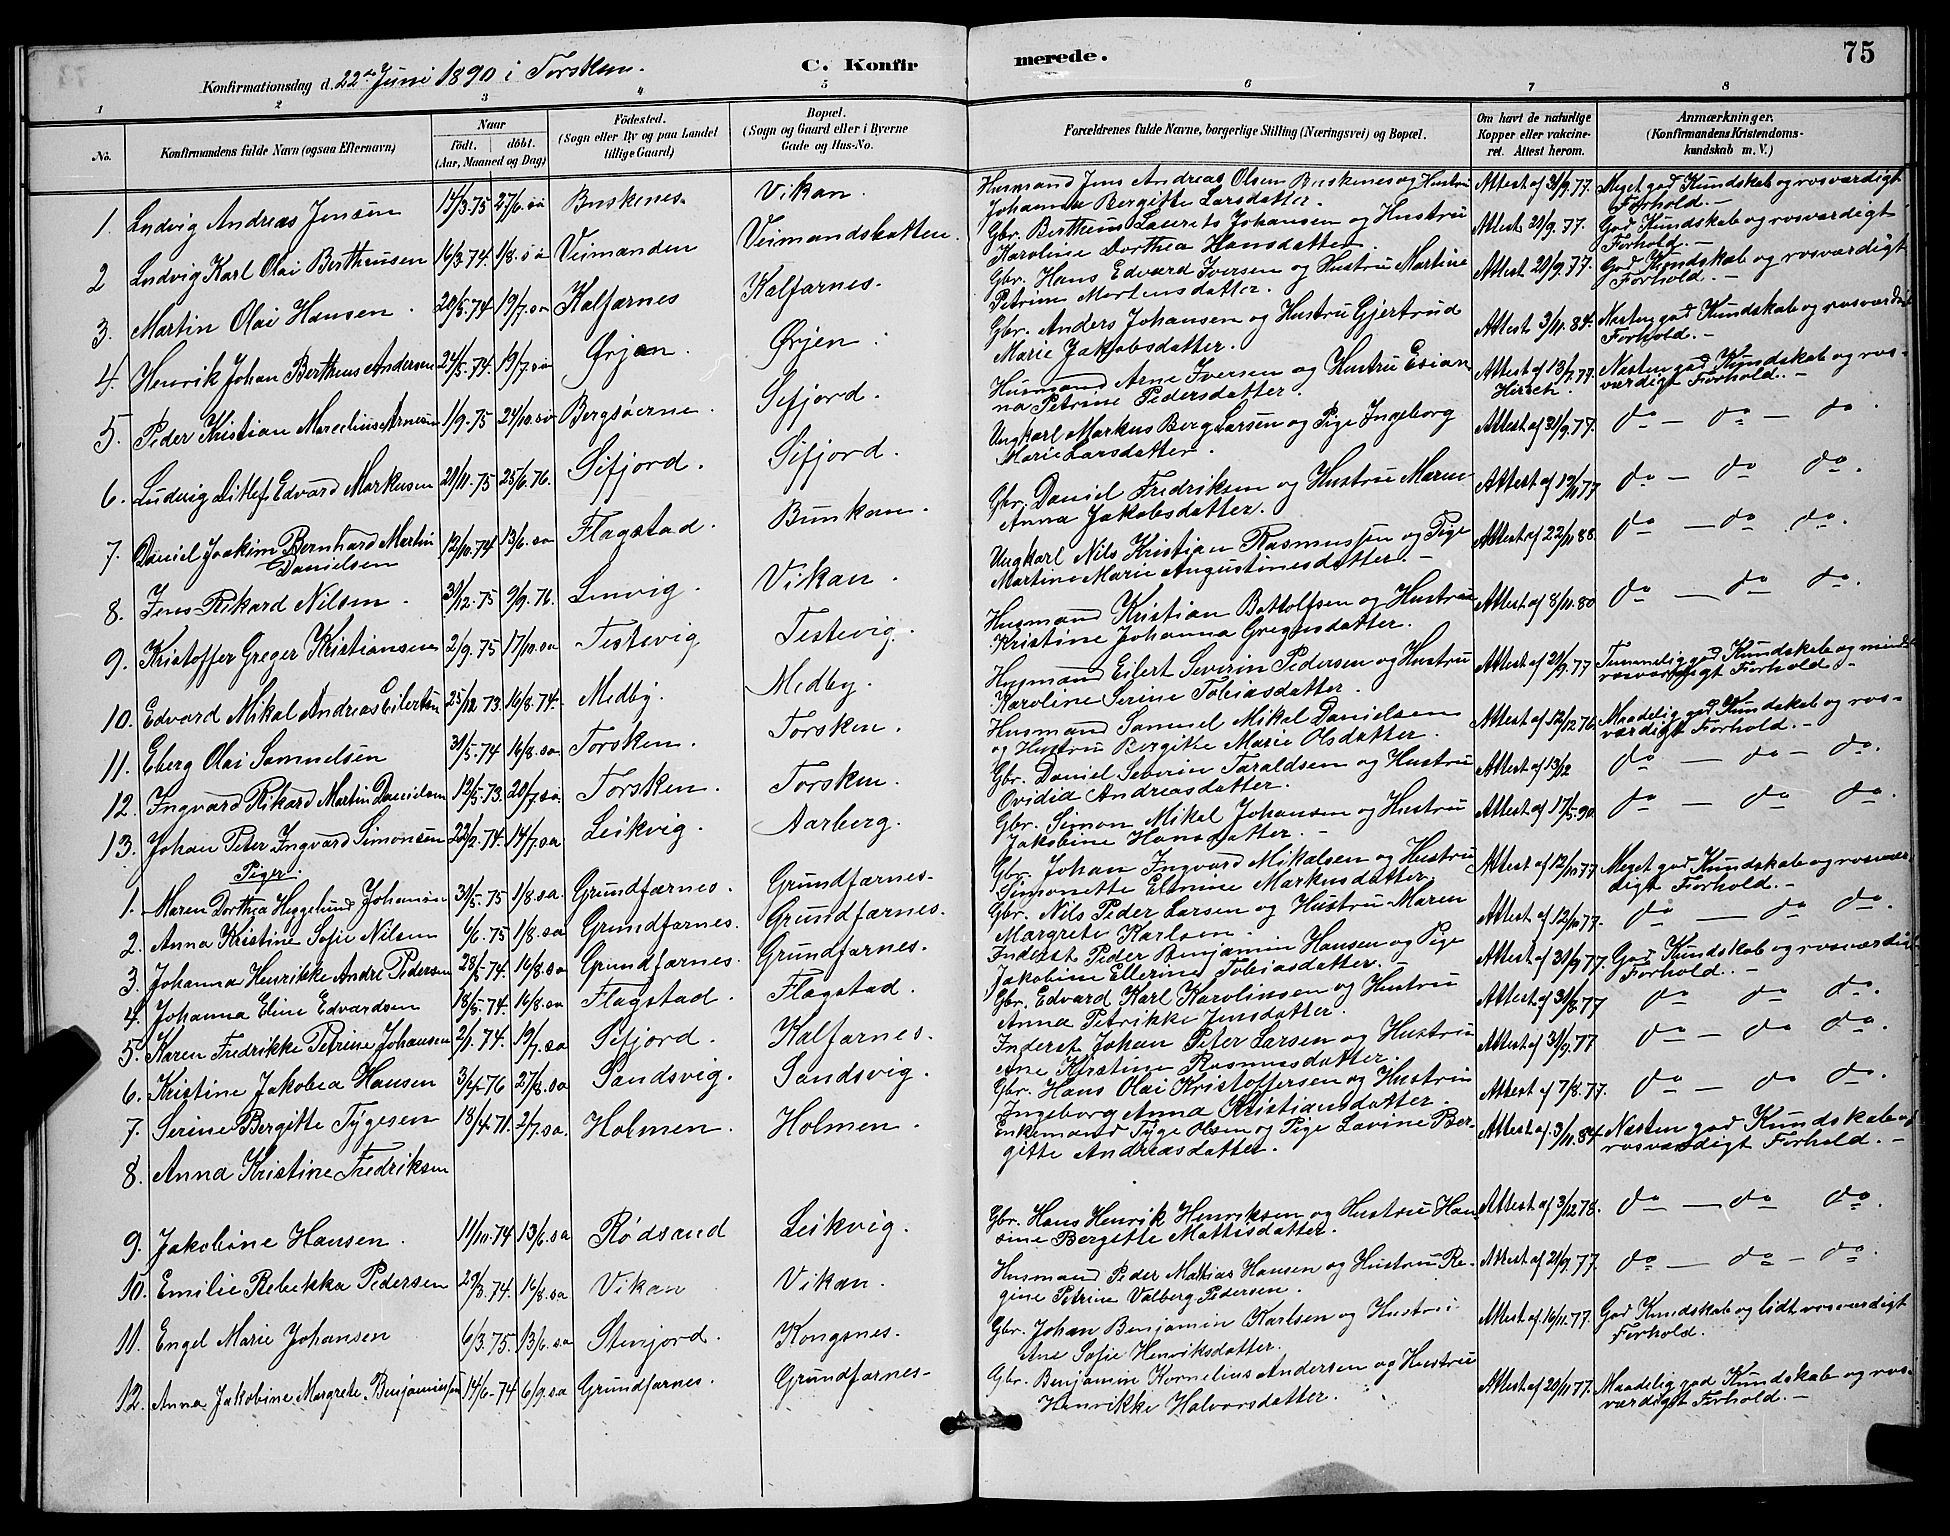 75
Konfirmationsdag d. 22de Juni 1890 i Torsken. C. Konfirmerede.
1 2 3 4 5 6 7 8
No. Konfirmandens fulde Navn (ogsaa Efternavn) Naar født. døbt. (Aar, Maaned og Dag) Fødested. (Sogn eller By og paa Landet tillige Gaard) Bopæl. (Sogn og Gaard eller i Byerne Gade og Hus-No. Forældrenes fulde Navne, borgerlige Stilling (Næringsvei) og Bopæl. Om havt de naturlige Kopper eller vakcineret. Attest herom. Anmærkninger. (Konfirmandens Kristendomskundskab m. V.)
1. Ludvig Andreas Jensen 15/3.75 27/6.sa Buskenes. Vikan. Husmand Jens Andreas Olsen Buskenes og Hustru Attest af 31/9.77. Meget god Kundskab og rosværdigt
Johanna Bergitte Larsdatter. Forhold.
2 Ludvig Karl Olai Bertheusen 16/3.74. 1/8.sa Veimanden Veimandskatten. Gbr. Bertheus Laurits Johansen og Hustru Attest 21/9.77. God Kundskab og rosværdigt
Karoline Dorthea Hansdatter. Forhold.
3. Martin Olai Hansen. 20/5.74 19/7.sa Kalfarnes Kalfarnes. Gbr. Hans Edvard Iversen og Hustru Martine Attest 21/9.77. God Kundskab og rosværdigt
Petrine Mortensdatter. Forhold.
4. Henrik Johan Bertheus Andersen 24/5.74. 19/7.sa Ørjen. Ørjen. Gbr. Anders Johansen og Hustru Gjertrud Attest 3/11.84. Næsten god Kundskab og rosværdigt
Marie Jakobsdatter. Forhold.
5. Peder Kristian Marcelius Arnesen 1/9.75 24/10.sa Bergsøerne. Sifjord. Husmand Arne Iversen og Hustru Esian Attest af 13/7.77. Næsten god Kundskab og ros-
na Petrine Pedersdatter. Hirsch. værdigt Forhold.
6. Ludvig Ditlef Edvard Markusen 21/11.75 25/6.76. Sifjord. Sifjord. Ungkarl Markus Berg Larsen og Pige Ingeborg Attest af 31/9.77. do — do — do.
Marie Larsdatter.
7. Daniel Joakim Bernhard Martin 12/10.74 13/6.sa Flagstad. Bunkan. Gbr. Daniel Fredriksen og Hustru Maren Attest af 12/11.77 do — do do.
Danielsen Anna Jakobsdatter.
8. Jens Rikard Nilsen. 31/12.75 9/9.76. Lenvig. Vikan. Ungkarl Nils Kristian Rasmussen og Pige Attest af 22/11 88. do — do do.
Martine Marie Augustinesdatter.
9. Kristoffer Greger Kristiansen 2/9.75 17/10.sa Testevig Testevig. Husmand Kristian Bottolfsen og Hustru Attest af 8/11.80 do — do do.
Kristine Johanna Gregusdatter.
10. Edvard Mikal Andreas Eilertsen 25/12.73. 16/8.74. Medby. Medby. Husmand Eilert Severin Pedersen og Hustru Attest af 21/9.77 Temmelig god Kundskab og mindre
Karoline Serine Tobiasdatter. rosværdigt Forhold.
11. Eberg Olai Samuelsen 31/5.74 16/8.sa Torsken. Torsken. Husmand Samuel Mikal Danielsen Attest af 12/12.76. Maadelig god Kundskab og ros-
og Hustru Bergitte Marie Olsdatter. værdigt Forhold.
12. Ingvard Rikard Martin Danielsen 12/5.73. 20/7.sa. Torsken. Torsken. Gbr. Daniel Severin Taraldsen og Hustru Attest af 13/12 do — do — do.
Ovidia Andreasdatter.
13. Johan Peter Ingvard Simonsen 22/2.74. 14/7.sa Leikvig. Aarberg. Gbr. Simon Mikal Johansen og Hustru Attest af 17/5.90. do — do do.
Jakobine Hansdatter.
Piger.
1. Maren Dorthea Heggelund Johansen 31/5.75 1/8.sa. Grundfarnes. Grundfarnes. Gbr. Johan Ingvard Mikalsen og Hustru Attest af 12/10.77 Meget god Kundskab og rosvær
Simonette Elmine Markusdatter. digt Forhold.
2. Anna Kristine Sofie Nilsen 6/6.75 1/8.sa Grundfarnes. Grundfarnes. Gbr. Nils Peder Larsen og Hustru Maren Attest af 12/10.77. do — do do.
Margrete Karlsen.
3. Johanna Henrikke Andre Pedersen 28/5.74. 16/8.sa Grundfarnes. Grundfarnes. Inderst Peder Benjamin Hansen og Pige Attest af 31/9.77. God Kundskab og rosværdigt
Jakobine Ellerine Tobiasdatter. Forhold.
4. Johanna Eline Edvardsen 18/5.74. 16/8.sa Flagstad. Flagstad. Gbr. Edvard Karl Karolinsen og Hustru Attest af 31/8.77 do do do.
Anna Petrikke Jensdatter.
5. Karen Fredrikke Petrine Johansen 2/1.74. 19/7.sa Sifjord. Kalfarnes. Inderst Johan Peter Larsen og Hustru Attest af 31/9.77 do — do do.
Ane Kirstine Rasmusdatter.
6. Kristine Jakobea Hansen 3/4.76 27/8.sa Sandsvig. Sandsvig. Gbr. Hans Olai Kristoffersen og Hustru Attest af 7/8.77. do — do do.
Ingeborg Anna Kristiansdatter.
7. Serine Bergitte Tygesen 18/4.71. 2/7.sa. Holmen. Holmen. Enkemand Tyge Olsen og Pige Lavine Ber- Attest af 3/11.84. Næsten god Kundskab og
gitte Andreasdatter. rosværdigt Forhold.
8. Anna Kristine Fredriksen
9. Jakobine Hansen. 11/10.74 13/6.sa Rødsand Leikvig. Gbr. Hans Henrik Henriksen og Hustru Han Attest af 3/12.78. do — do do.
sine Bergitte Mattisdatter.
10. Emilie Rebekka Pedersen 29/3.74. 16/8.sa Vikan Vikan. Husmand Peder Mathias Hansen og Hustru Re- Attest af 21/9.77. do — do — do.
gine Petrine Valberg Pedersen.
11. Engel Marie Johansen 6/3.75. 13/6.sa Stenjord. Kongsnes. Gbr. Johan Benjamin Karlsen og Hustru Attest af 16/11.77. God Kundskab og lidt rosværdigt
Ane Sofie Henriksdatter. Forhold.
12. Anna Jakobine Margrete Benjaminsen 14/6.74 6/9.sa Grundfarnes. Grundfarnes. Gbr. Benjamin Kornelius Andersen og Hustru Attest af 20/11.77. Maadelig god Kundskab og ros-
Henrikke Halvorsdatter. værdigt Forhold.